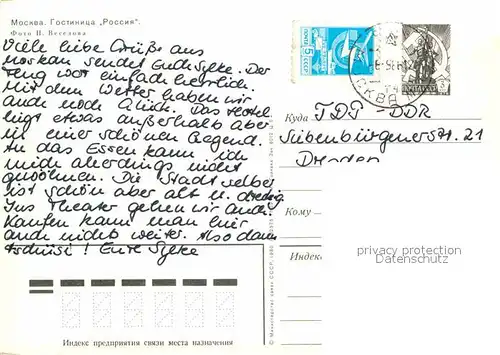 Москва. Гостиница „Россия".
Фото Н. Веселова
Viele liebe Grüße aus
Moskau sendet Euch Sylke. Der
Flug war einfach herrlich.
Mit dem Wetter haben wir
auch noch Glück. Das Hotel
liegt etwas außerhalb aber
in einer schönen Gegend.
An das Essen kann ich
mich allerdings nicht
gewöhnen. Die Stadt selber
ist schön aber alt u. dreckig.
Ins Theater gehen wir auch.
Kaufen kann man hier
auch nichts weiter. Also dann
tschüssi! Eure Sylke
5 СССР
МОСКВА
Куда
TDJ - DDR
Siebenbürgenerstr. 21
Dresden
Кому
Индекс
privacy protection
Индекс предприятия связи места назначения
© Министерство связи СССР, 1980